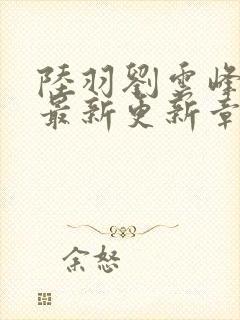 陸羽劉雲峰
最新更新章
余怒